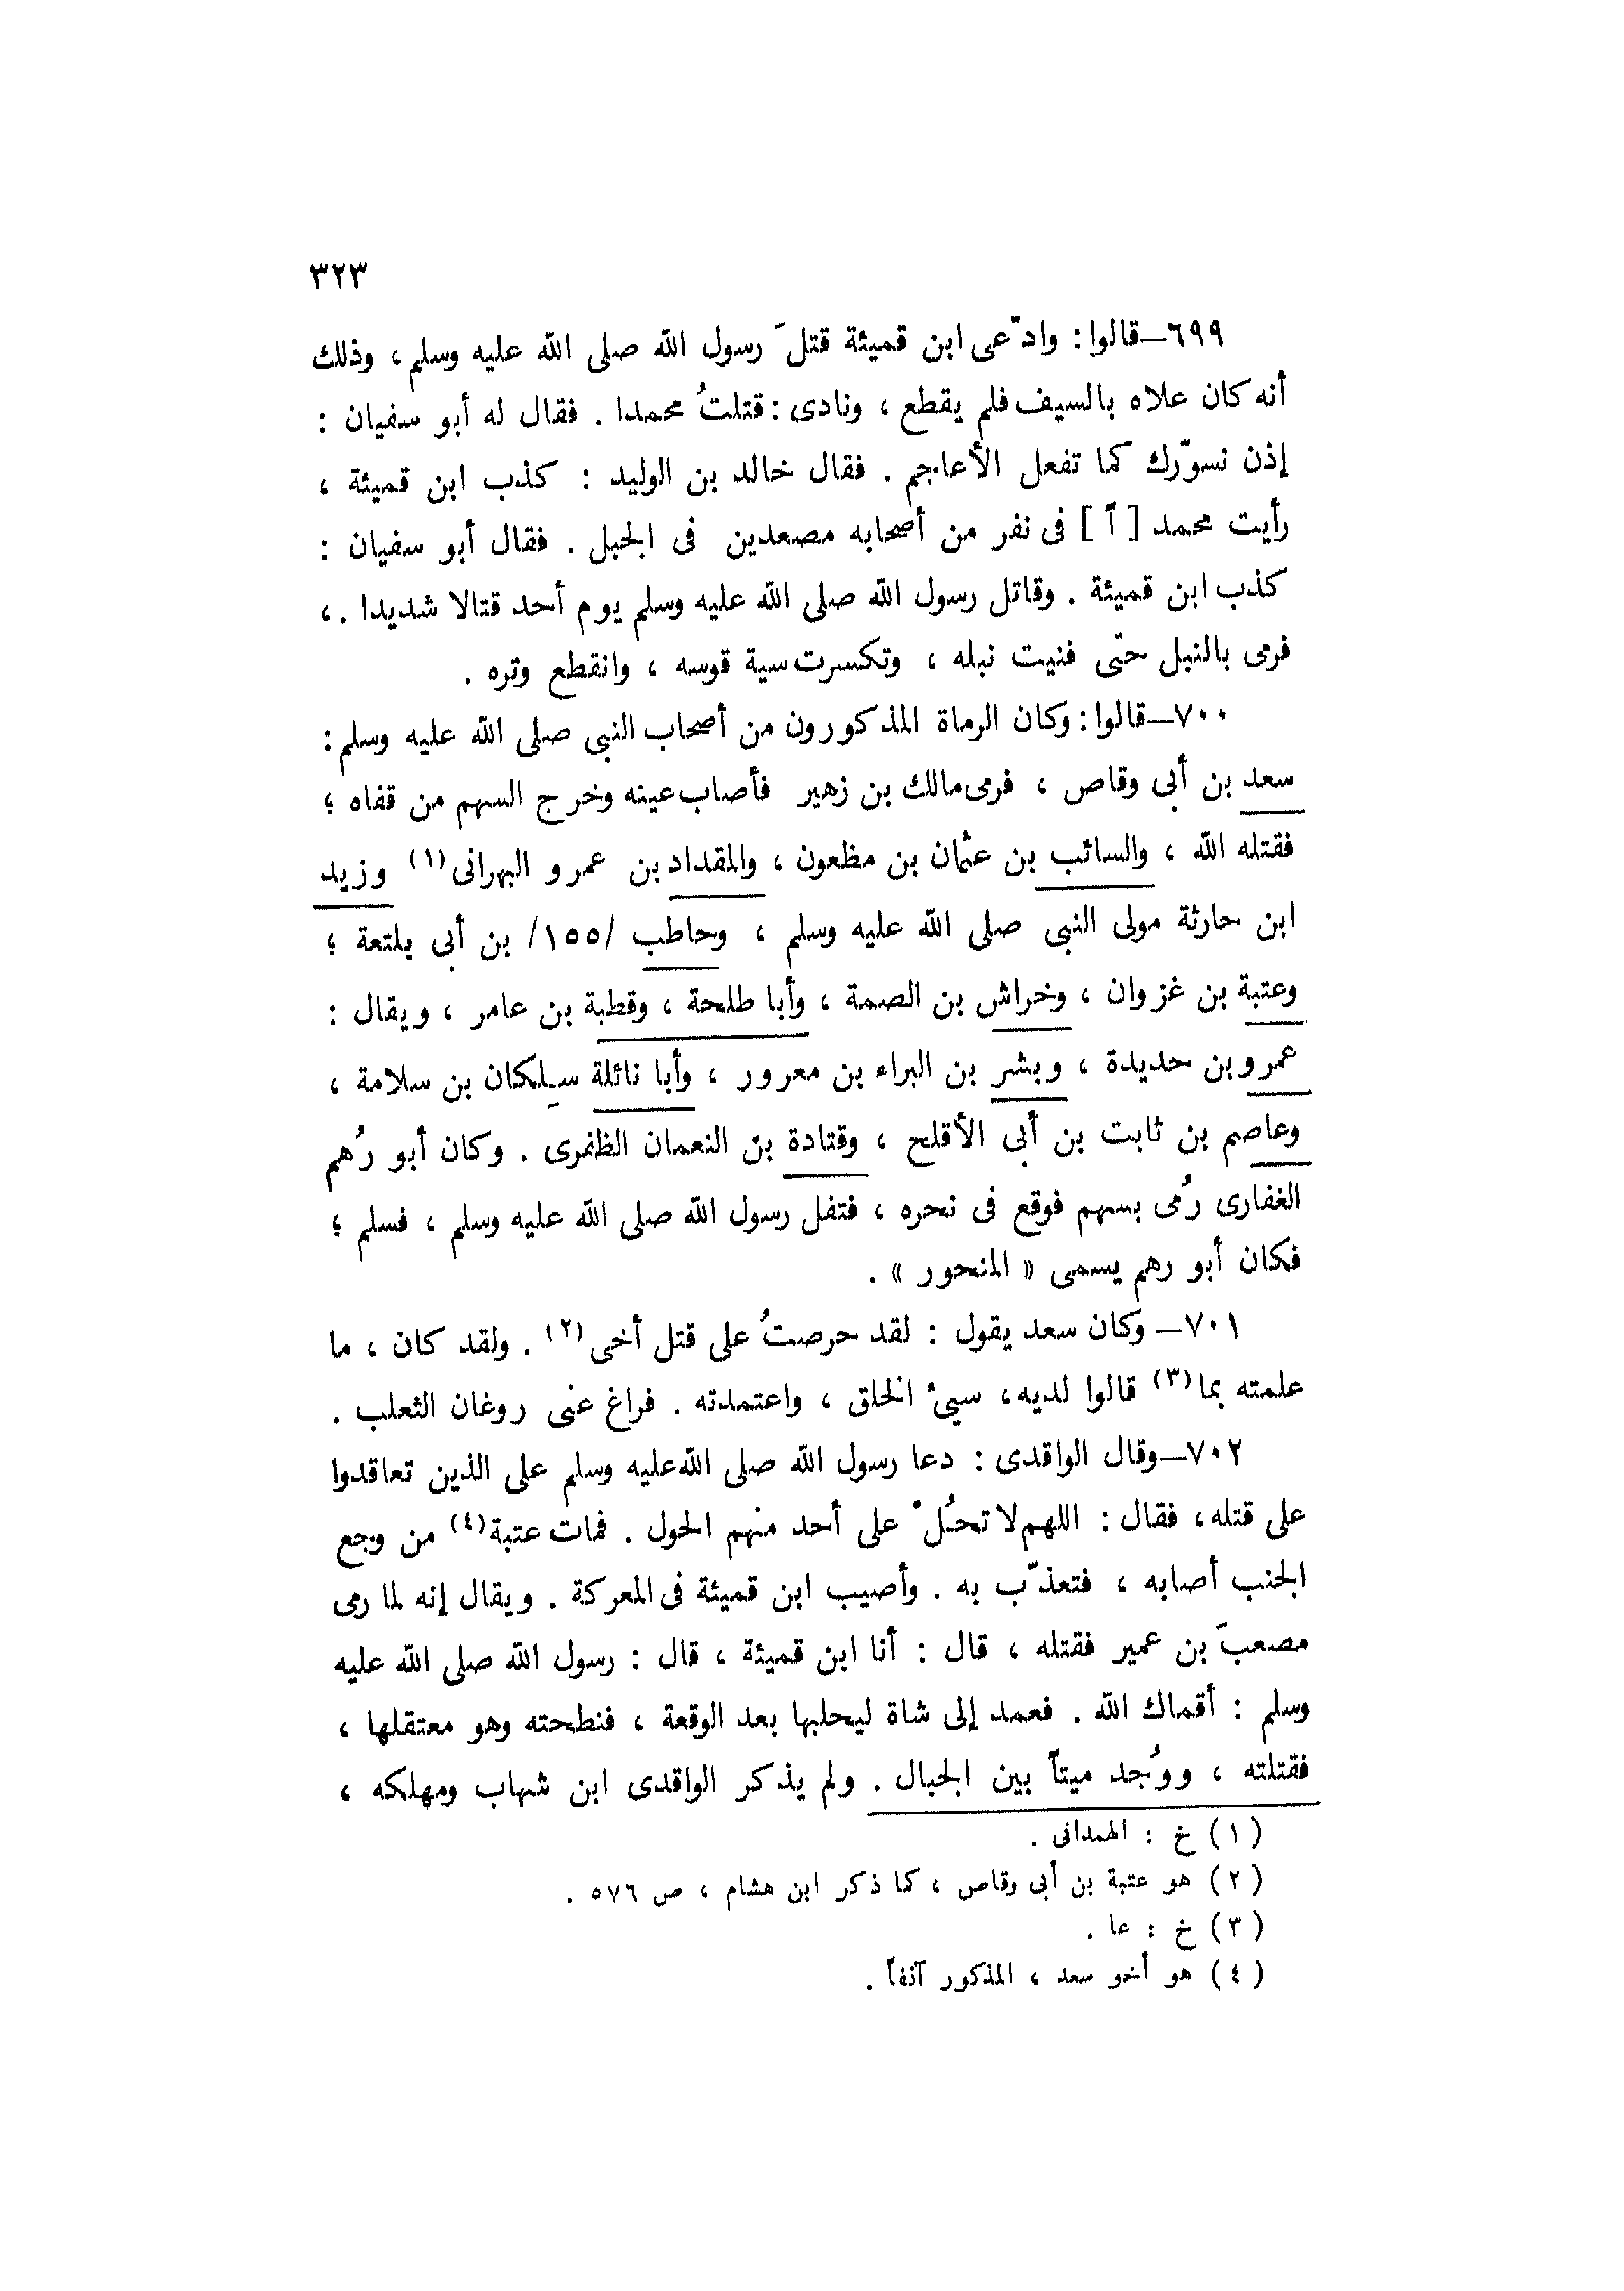 ٣٢٣
٦٩٩–قالوا: وادّعى ابن قميئة قتلَ رسول الله صلى الله عليه وسلم ، وذلك
أنه كان علاه بالسيف فلم يقطع ، ونادى : قتلتُ محمدا . فقال له أبو سفيان :
إذن نسوّرك كما تفعل الأعاجم . فقال خالد بن الوليد : كذب ابن قميئة ،
رأيت محمد [ اً ] فى نفر من أصحابه مصعدين فى الجبل . فقال أبو سفيان :
كذب ابن قميئة . وقاتل رسول الله صلى الله عليه وسلم يوم أحد قتالا شديدا . ،
فرمى بالنبل حتى فنيت نبله ، وتكسرت سية قوسه ، وانقطع وتره .
٧٠٠–قالوا : وكان الرماة المذكورون من أصحاب النبى صلى الله عليه وسلم :
سعد بن أبى وقاص ، فرمى مالك بن زهير فأصاب عينه وخرج السهم من قفاه ؛
فقتله الله ، والسائب بن عثمان بن مظعون ، والمقداد بن عمرو البهرانى (١) وزيد
ابن حارثة مولى النبى صلى الله عليه وسلم ، وحاطب /١٥٥/ بن أبى بلتعة ؛
وعتبة بن غزوان ، وخراش بن الصمة ، وأبا طلحة ، وقطبة بن عامر ، ويقال :
عمرو بن حديدة ، وبشر بن البراء بن معرور ، وأبا نائلة سِلكان بن سلامة ،
وعاصم بن ثابت بن أبى الأقلح ، وقتادة بن النعمان الظفرى . وكان أبو رُهم
الغفارى رُمى بسهم فوقع فى نحره ، فتفل رسول الله صلى الله عليه وسلم ، فسلم ؛
فكان أبو رهم يسمى « المنحور » .
٧٠١– وكان سعد يقول : لقد حرصتُ على قتل أخى (٢) . ولقد كان ، ما
علمته بما (٣) قالوا لديه، سيىُٔ الخلق ، واعتمدته . فراغ عنى روغان الثعلب .
٧٠٢–وقال الواقدى : دعا رسول الله صلى الله عليه وسلم على الذين تعاقدوا
على قتله ، فقال : اللهم لا تحُلْ على أحد منهم الحول . فمات عتبة (٤) من وجع
الجنب أصابه ، فتعذّب به . وأصيب ابن قميئة فى المعركة . ويقال إنه لما رمى
مصعبَ بن عمير فقتله ، قال : أنا ابن قميئة ، قال : رسول الله صلى الله عليه
وسلم : أقماك الله . فعمد إلى شاة ليحلبها بعد الوقعة ، فنطحته وهو معتقلها ،
فقتلته ، ووُجد ميتاً بين الجبال . ولم يذكر الواقدى ابن شهاب ومهلكه ،
(١) خ : الهمدانى .
(٢) هو عتبة بن أبى وقاص ، كما ذكر ابن هشام ، ص ٥٧٦ .
(٣) خ : عا .
(٤) هو أخو سعد ، المذكور آنفاً .